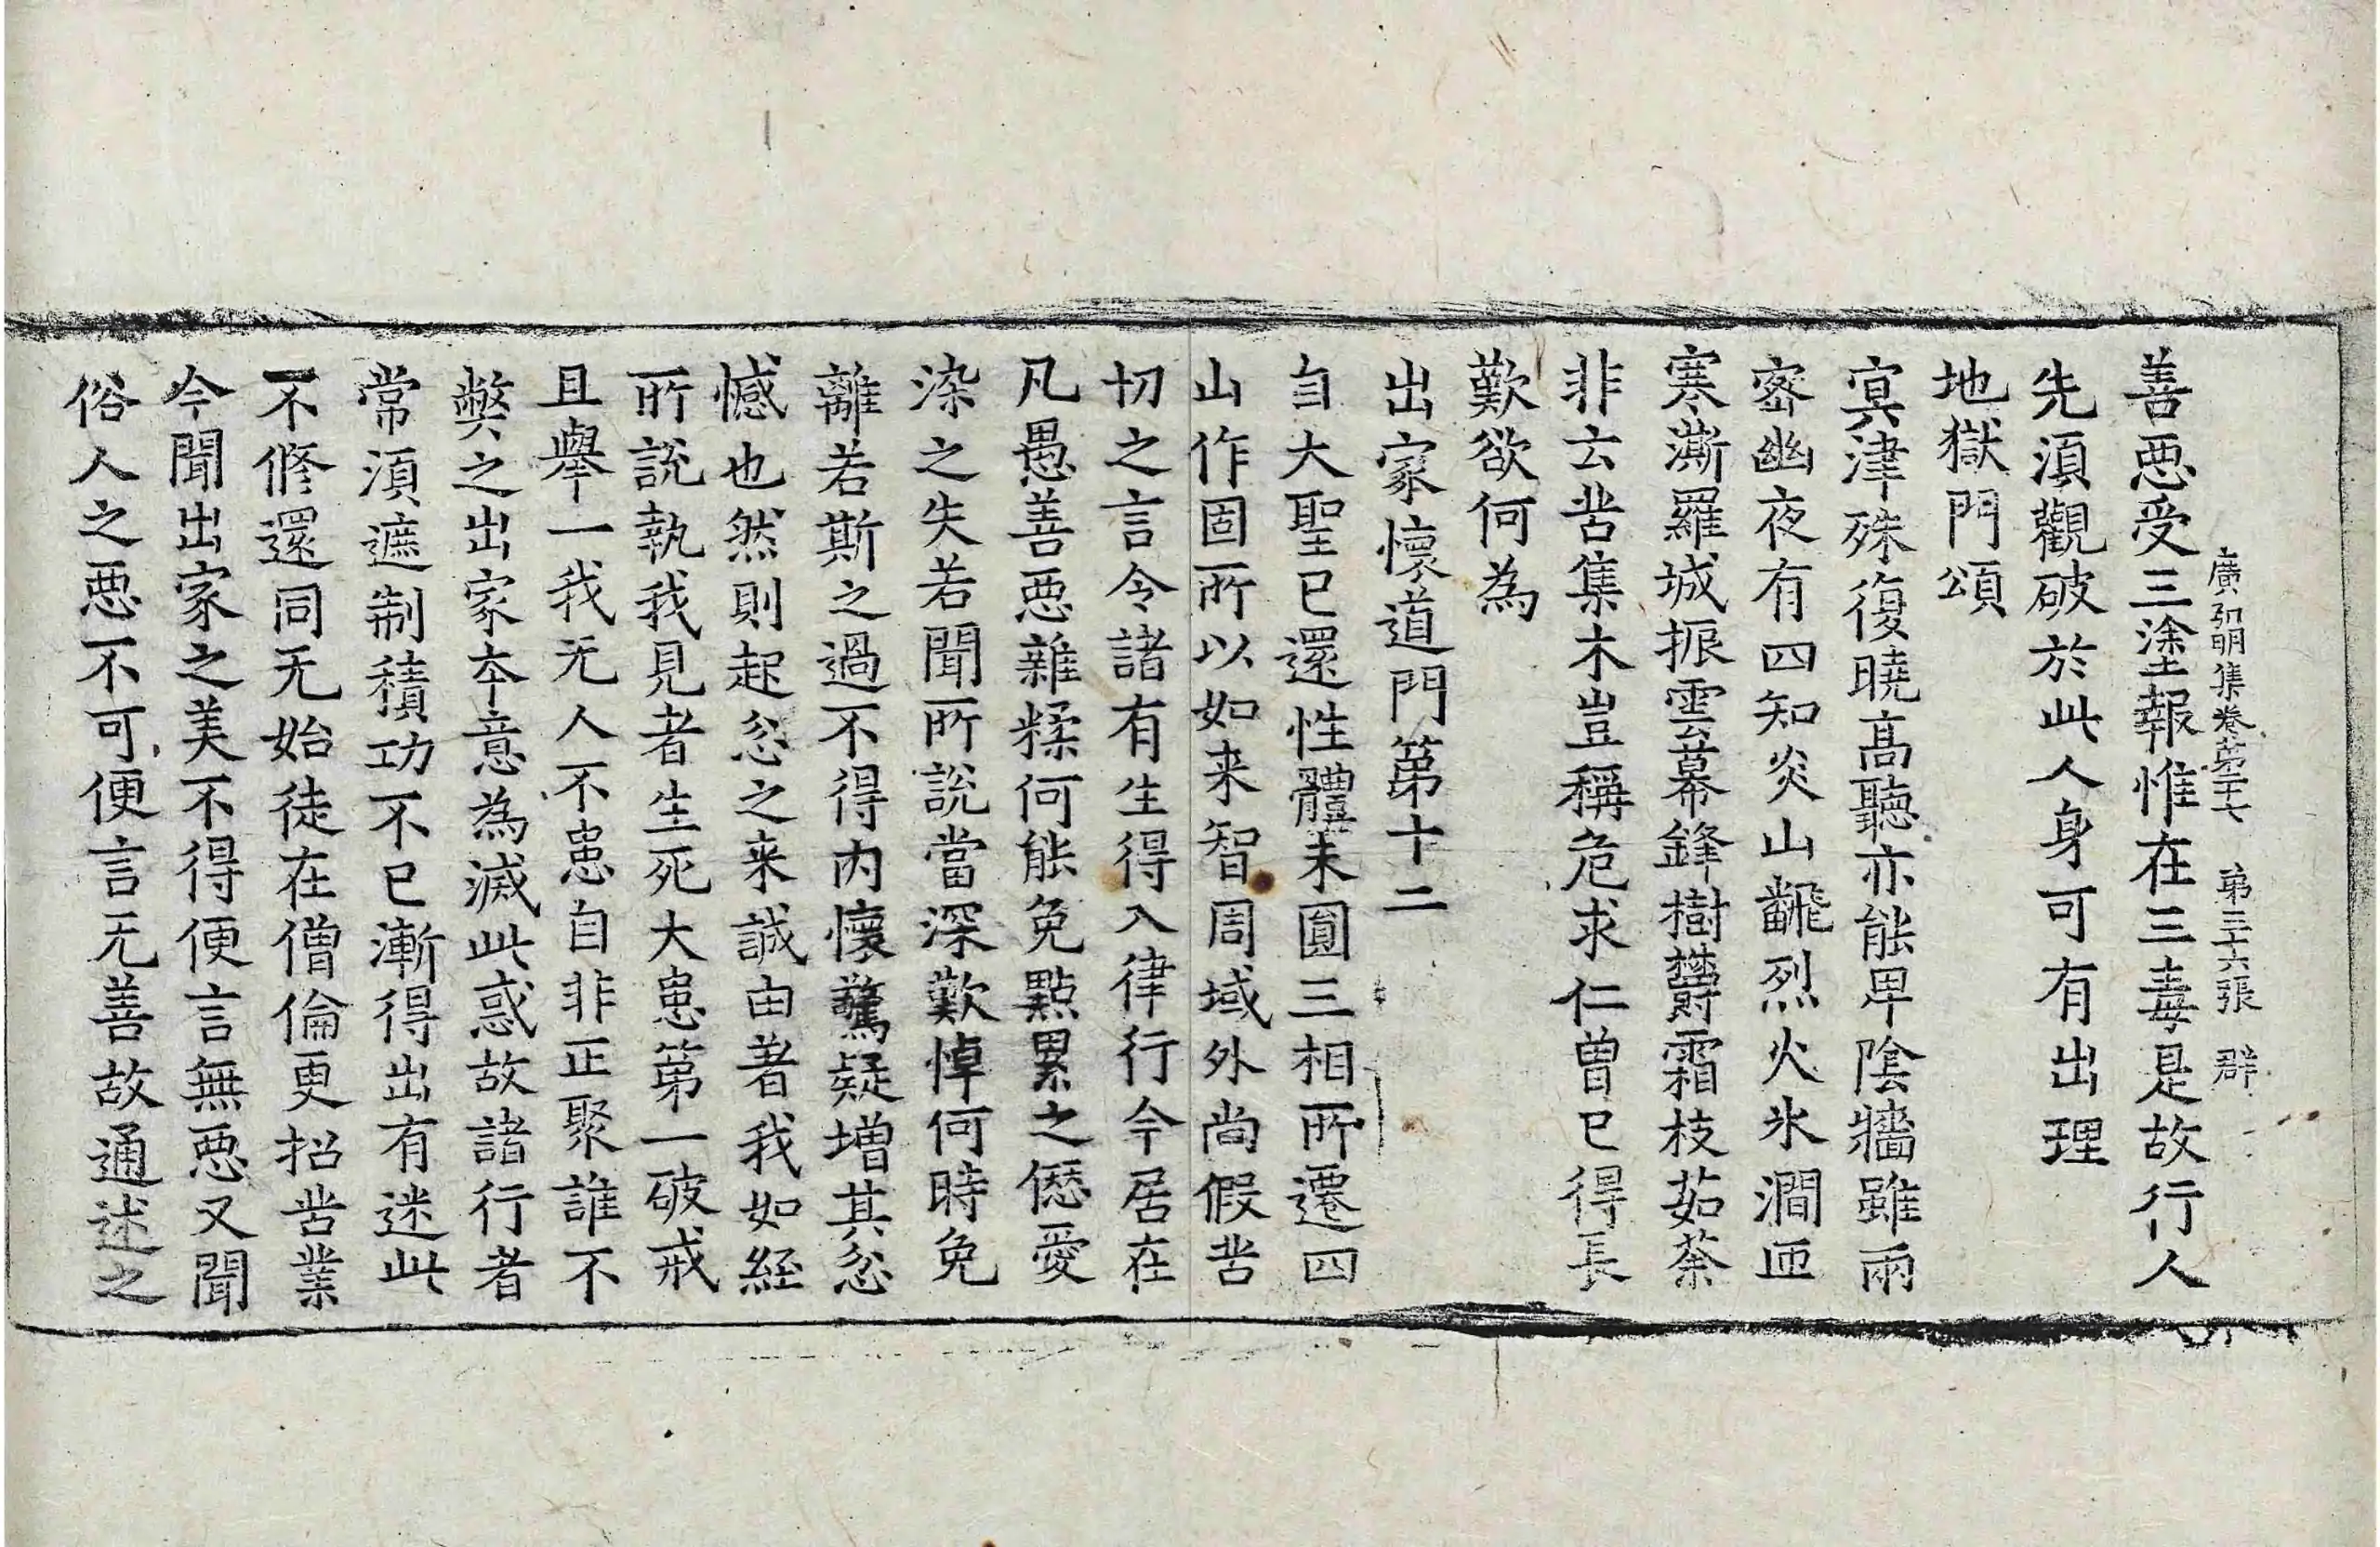 廣弘明集卷第二十七 第三十六張 群
善惡受三塗報惟在三毒是故行人
先須觀破於此人身可有出理
地獄門頌
冥津殊復曉高聽亦能卑陰牆雖兩
密幽夜有四知炎山飜烈火氷澗匝
寒澌羅城振雲幕鋒樹欝霜枝茹荼
非云苦集木豈稱危求仁曾已得長
歎欲何為
出家懷道門第十二
自大聖已還性體未圓三相所遷四
山作固所以如来智周域外尚假苦
切之言令諸有生得入律行今居在
凡愚善惡雜糅何能免點累之愆愛
染之失若聞所說當深歎悼何時免
離若斯之過不得內懷驚疑增其忿
憾也然則起忿之来誠由著我如經
所說執我見者生死大患第一破戒
且舉一我无人不患自非正聚誰不
弊之出家本意為滅此惑故諸行者
常須遮制積功不已漸得出有迷此
不修還同无始徒在僧倫更招苦業
今聞出家之美不得便言無惡又聞
俗人之惡不可便言无善故通述之